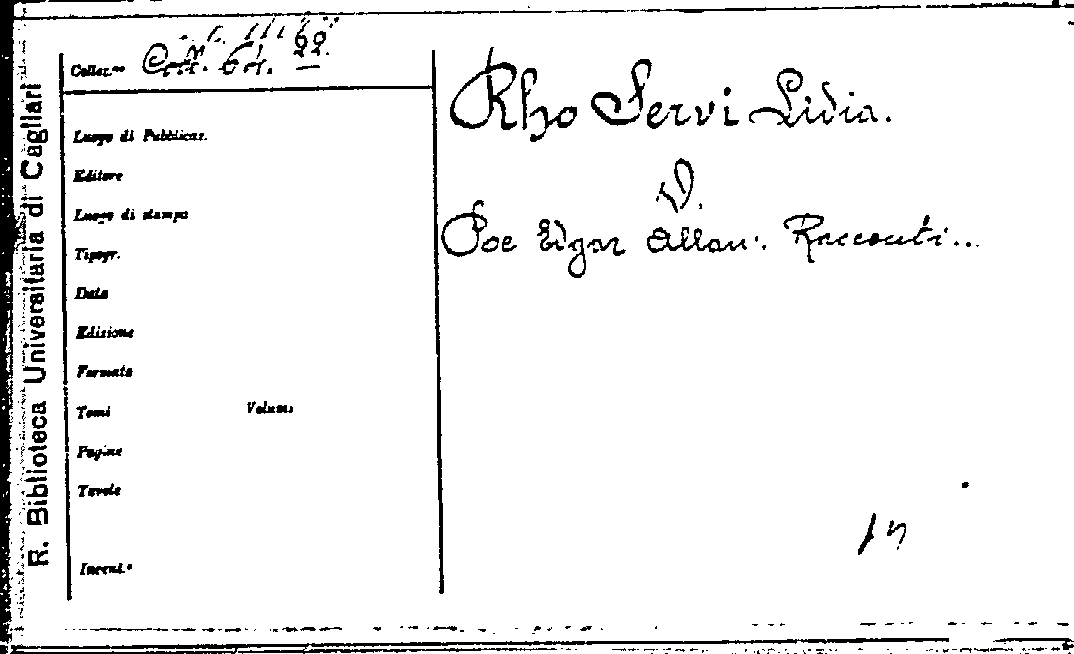 R. Biblioteca Universitaria di Cagliari
Colloc.ne Coll.
Luogo di Pubblicaz.
Editore
Luogo di stampa
Tipogr.
Data
Edizione
Formato
Tomi Volumi
Pagine
Tavole
Invent.º
Rho Servi Lidia.
V.
Poe Edgar Allan: Racconti...